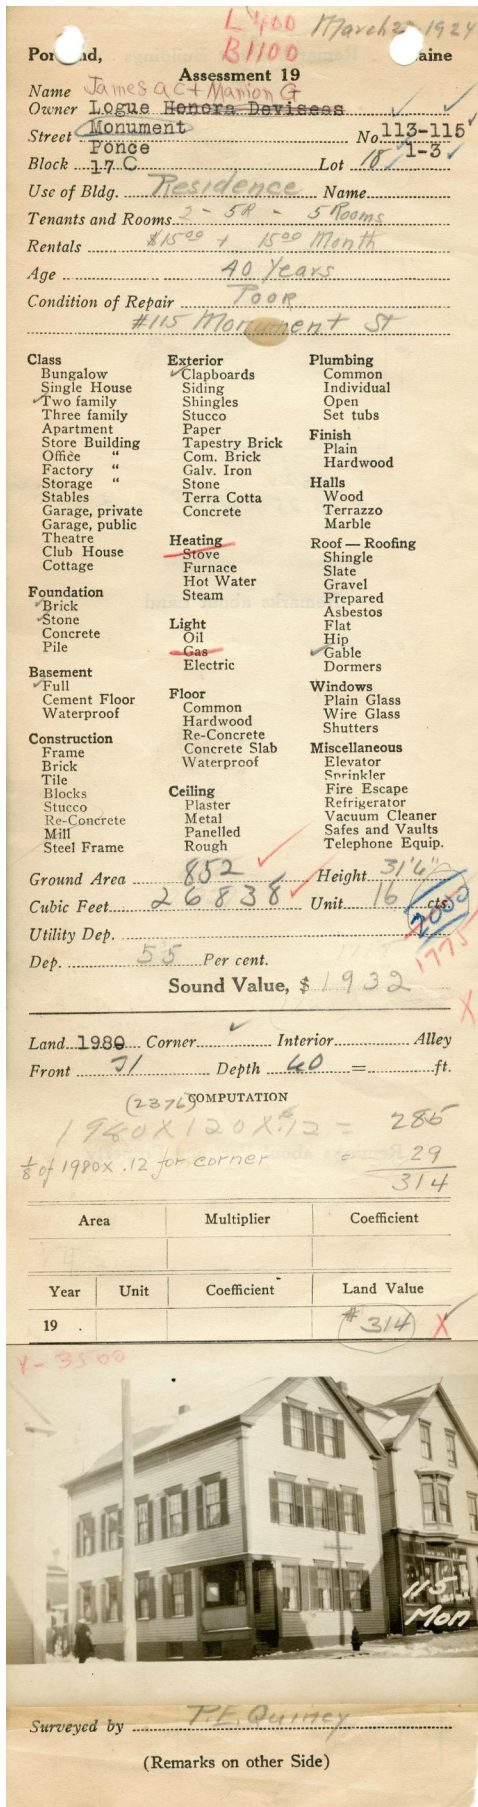 L 400 March 2 1924
B 1100
Portland, Maine
Assessment 19
Name James A C + Marion G
Owner Logue Honora Deviseas
Street Monument No 113-115
Ponce 1-3
Block 17 C Lot 18
Use of Bldg. Residence Name
Tenants and Rooms 2 - 5R - 5 Rooms
Rentals $15.00 + 15.00 Month
Age 40 Years
Condition of Repair Poor
#115 Monument St
Class
Bungalow
Single House
Two family
Three family
Apartment
Store Building
Office "
Factory "
Storage "
Stables
Garage, private
Garage, public
Theatre
Club House
Cottage
Foundation
Brick
Stone
Concrete
Pile
Basement
Full
Cement Floor
Waterproof
Construction
Frame
Brick
Tile
Blocks
Stucco
Re-Concrete
Mill
Steel Frame
Exterior
Clapboards
Siding
Shingles
Stucco
Paper
Tapestry Brick
Com. Brick
Galv. Iron
Stone
Terra Cotta
Concrete
Heating
Stove
Furnace
Hot Water
Steam
Light
Oil
Gas
Electric
Floor
Common
Hardwood
Re-Concrete
Concrete Slab
Waterproof
Ceiling
Plaster
Metal
Panelled
Rough
Plumbing
Common
Individual
Open
Set tubs
Finish
Plain
Hardwood
Halls
Wood
Terrazzo
Marble
Roof — Roofing
Shingle
Slate
Gravel
Prepared
Asbestos
Flat
Hip
Gable
Dormers
Windows
Plain Glass
Wire Glass
Shutters
Miscellaneous
Elevator
Sprinkler
Fire Escape
Refrigerator
Vacuum Cleaner
Safes and Vaults
Telephone Equip.
Ground Area 852 Height 31'6"
Cubic Feet 26838 Unit 16 cts.
2000
Utility Dep.
1775
Dep. 55 Per cent.
Sound Value, $ 1932
X
Land 1980 Corner Interior Alley
Front 31 Depth 60 = ft.
(2376) COMPUTATION
1980 X 120 X .12 = 285
1/8 of 1980 x .12 for corner = 29
314
Area Multiplier Coefficient
Year Unit Coefficient Land Value
19 . # 314 X
Y - 3500
115
Mon
Surveyed by P.E. Quincy
(Remarks on other Side)